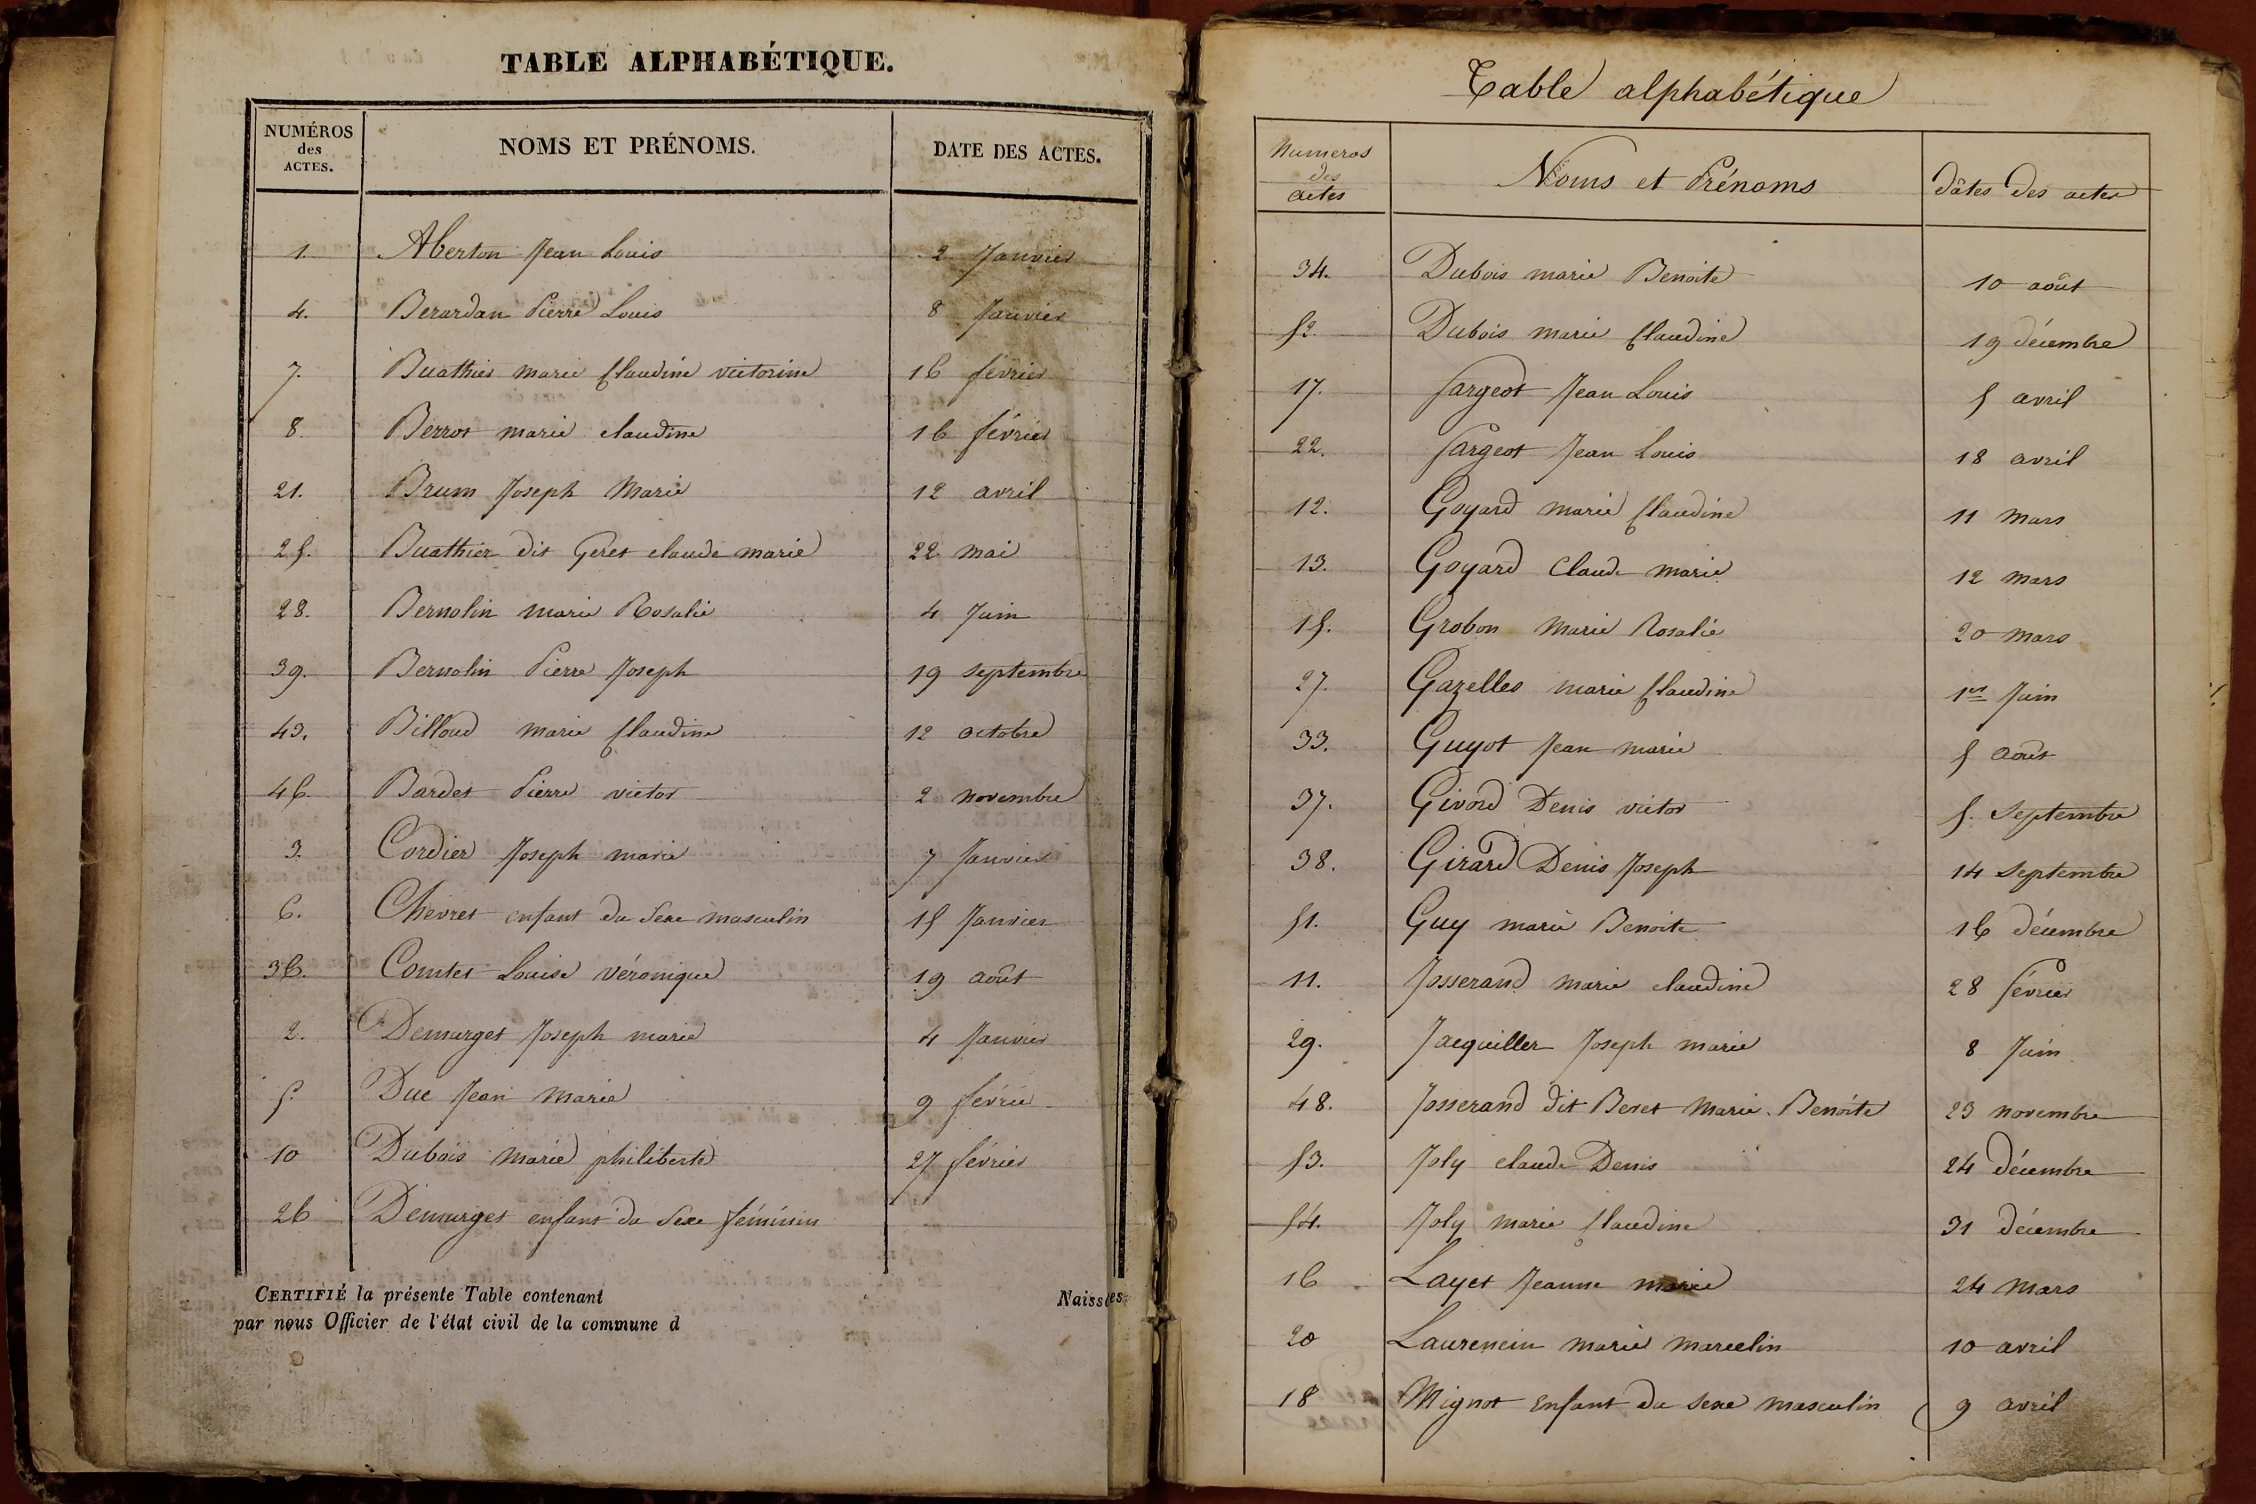 TABLE ALPHABÉTIQUE.
NUMÉROS des ACTES. NOMS ET PRÉNOMS. DATE DES ACTES.
1. Aberton Jean Louis 2 Janvier
4. Berardan Pierre Louis 8 Janvier
7. Buathier marie Claudine victorine 16 février
8. Berrot marie claudine 16 février
21. Brum Joseph Marie 12 avril
25. Buathier dit Geret claude marie 22 mai
28. Bernolin marie Rosalie 4 Juin
39. Bernolin Pierre Joseph 19 septembre
43. Billoud marie Claudine 12 octobre
46. Bardet Pierre victor 2 novembre
3. Cordier Joseph marie 7 Janvier
6. Chevret enfant du Sexe masculin 15 Janvier
36. Comtet Louise véronique 19 août
2. Demurget Joseph marie 4 Janvier
5. Duc Jean Marie 9 février
10 Dubois Marie philiberte 27 février
26 Demurget enfant du Sexe féminin
CERTIFIÉ la présente Table contenant Naiss
par nous Officier de l'état civil de la commune d
Table alphabétique
Numeros des actes Noms et Prénoms dâtes des actes
34. Dubois marie Benoite 10 août
52. Dubois marie Claudine 19 décembre
17. fargeot Jean Louis 5 avril
22. fargeot Jean Louis 18 avril
12. Goyard marie Claudine 11 mars
13. Goyard Claude marie 12 mars
15. Grobon Marie Rosalie 20 mars
27. Gazelles marie Claudine 1er Juin
33. Guyot Jean marie 5 août
37. Givord Denis victor 5. Septembre
38. Girard Denis Joseph 14 Septembre
51. Guy marie Benoite 16 décembre
11. Josserand marie claudine 28 février
29. Jacquiller Joseph marie 8 Juin
48. Josserand dit Beret Marie Benoite 23 novembre
53. Joly claude Denis 24 décembre
54. Joly marie Claudine 31 décembre
16 Layet Jeanne marie 24 Mars
20 Laurencin marie marcelin 10 avril
18 Mignot enfant du sexe masculin 9 avril